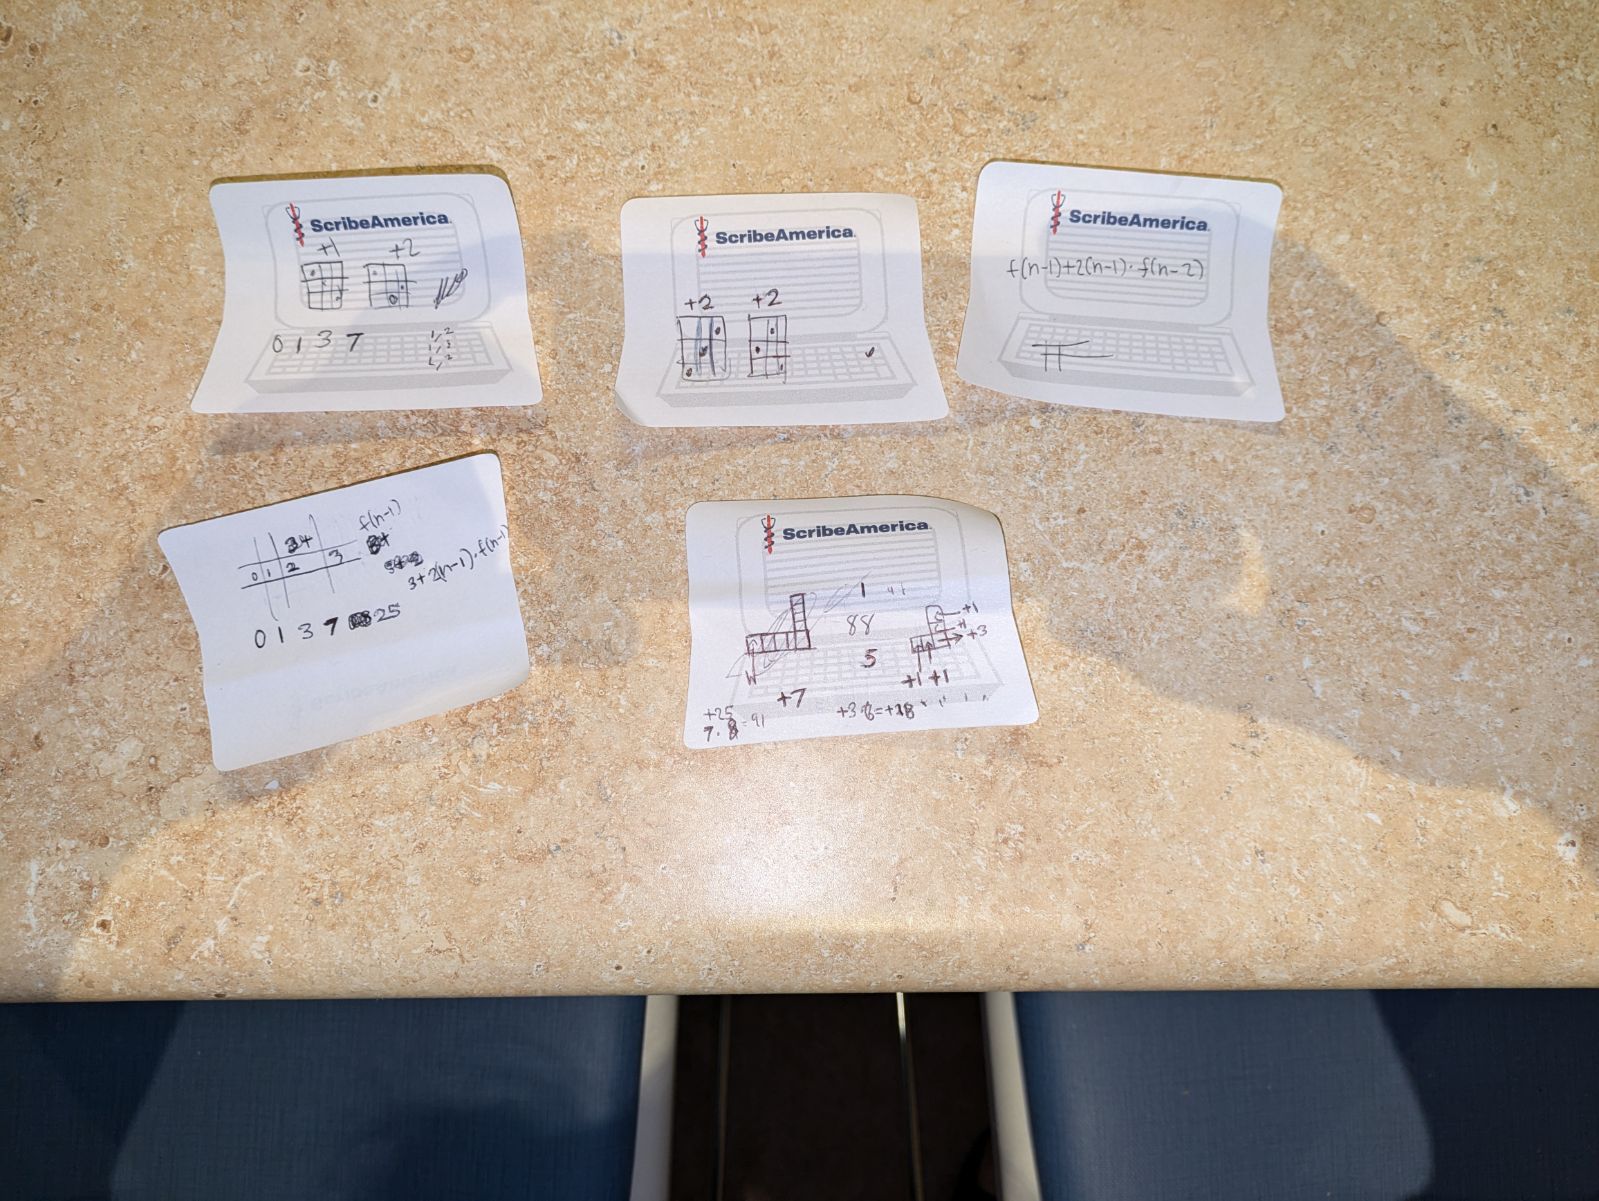 ScribeAmerica
+1 +2
0 1 3 7
1, 2
1, 2
ScribeAmerica
+2 +2
ScribeAmerica
f(n-1)+2(n-1)·f(n-2)
34
f(n-1)
0 1 2 3
3+2(n-1)·f(n-1)
0 1 3 7 25
ScribeAmerica
1
88
5
+1
+3
+1 +1
+7
+25
7·8=91